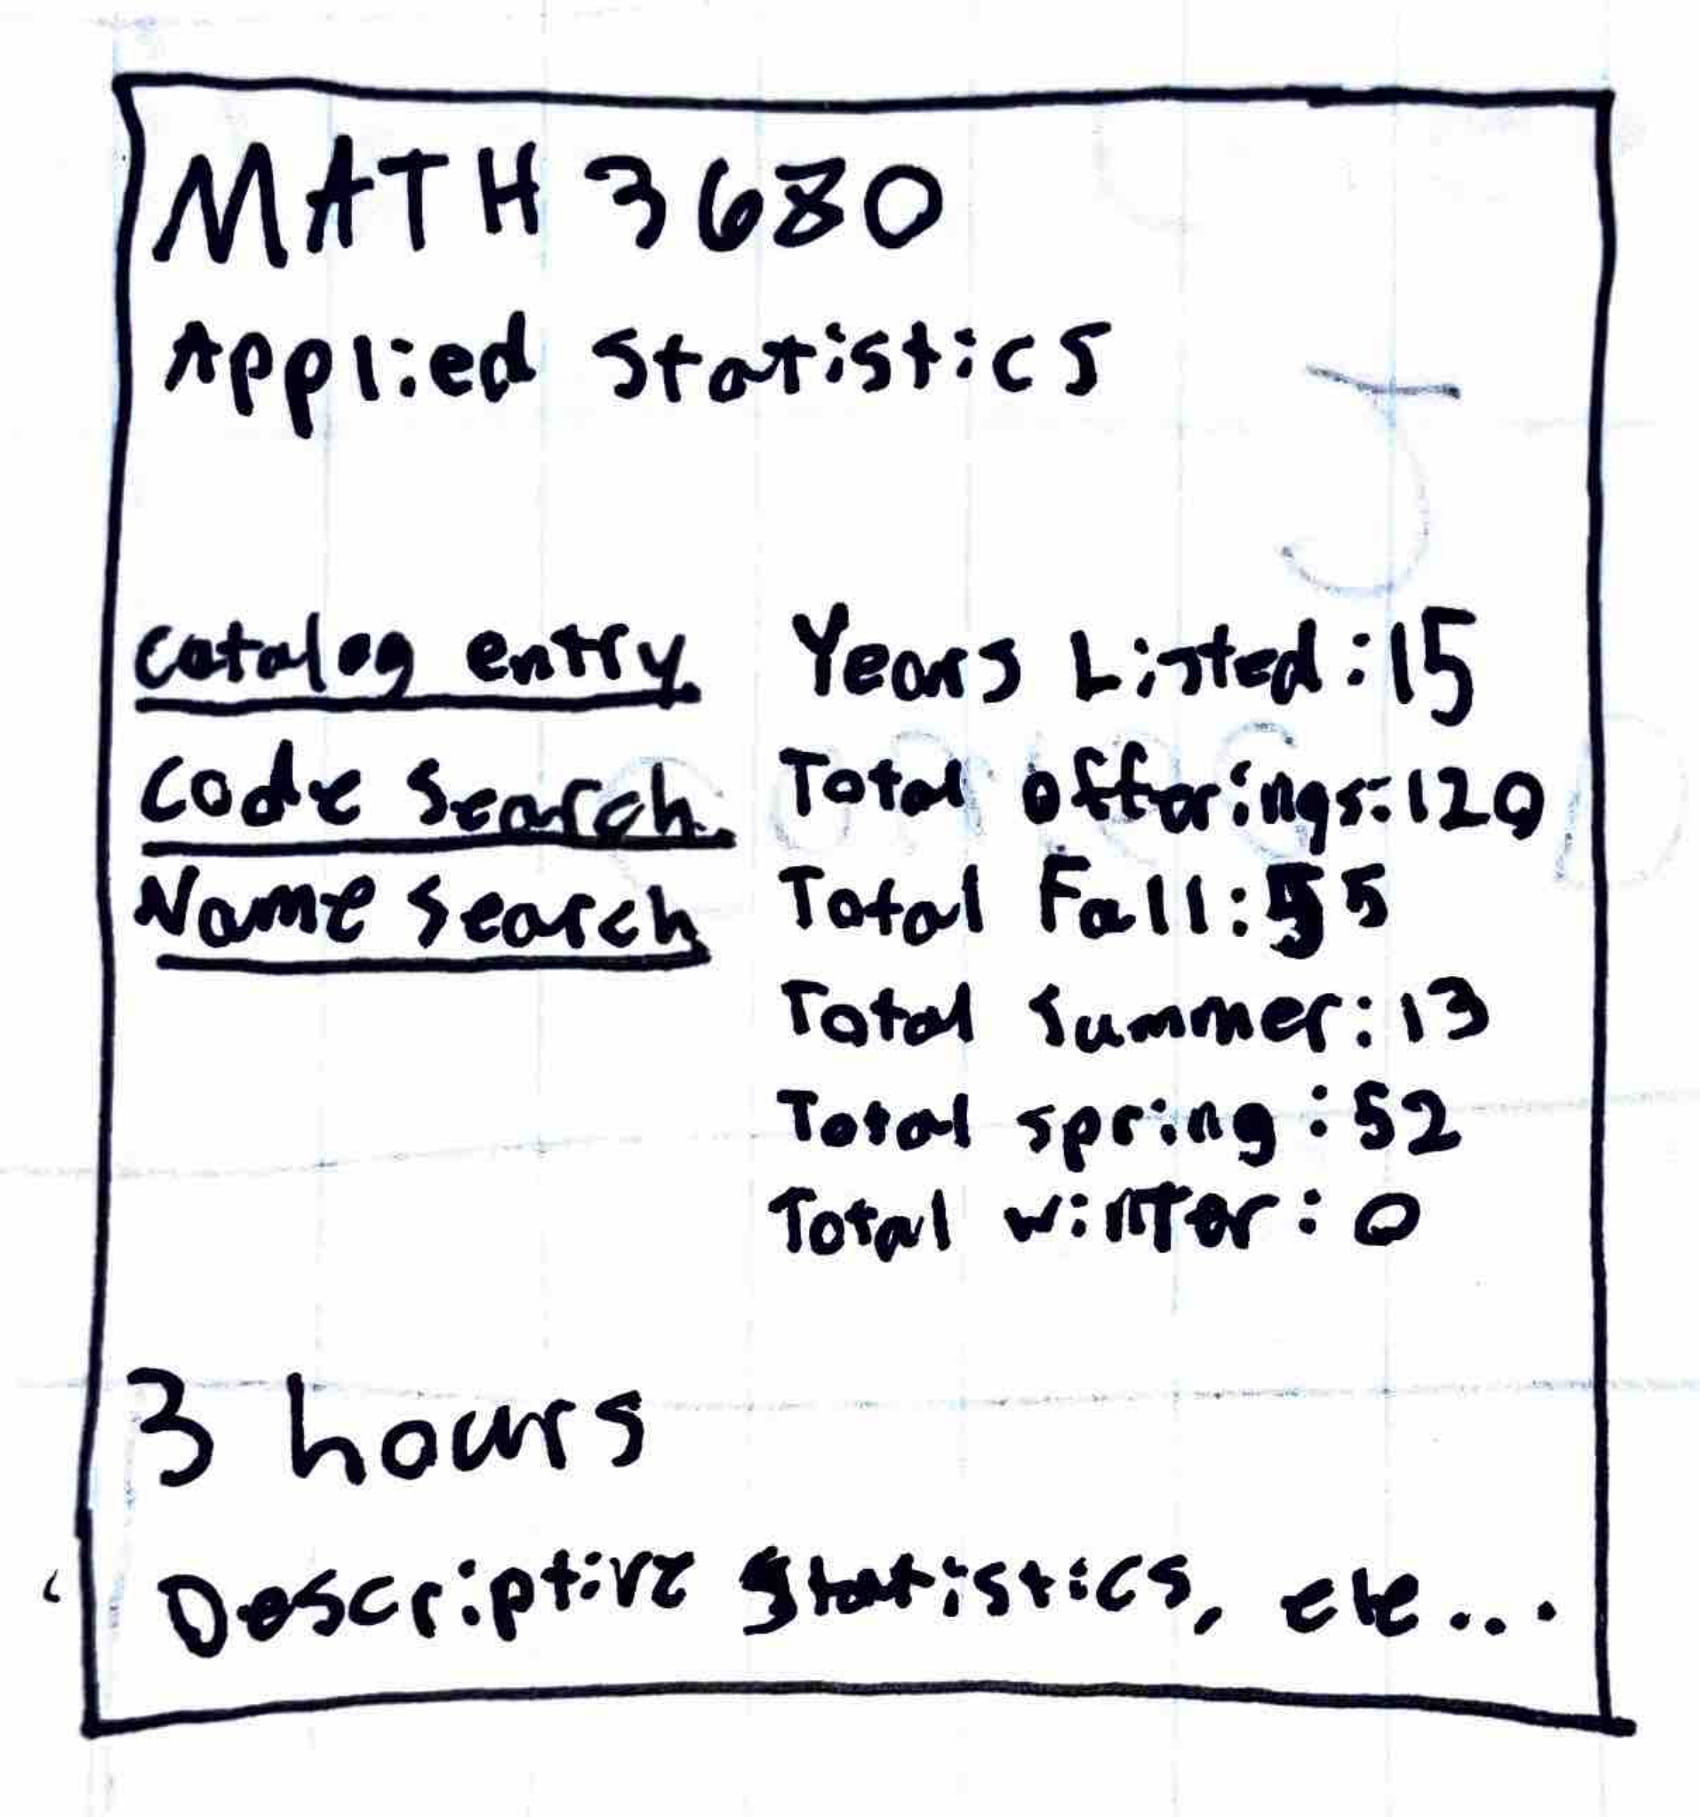 MATH 3680
Applied Statistics
Catalog entry
Code Search
Name Search
Years Listed:15
Total offerings:120
Total Fall:55
Total Summer:13
Total spring:52
Total winter:0
3 hours
Descriptive Statistics, etc...